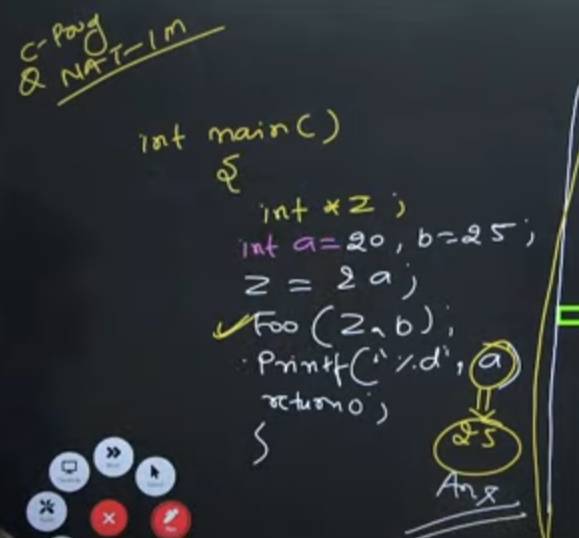 C-Prog
Q NAT-1M
int main()
{
int *z;
int a=20, b=25;
z = &a;
Foo(z, b);
Printf("%d", a)
return 0;
}
25
Ans